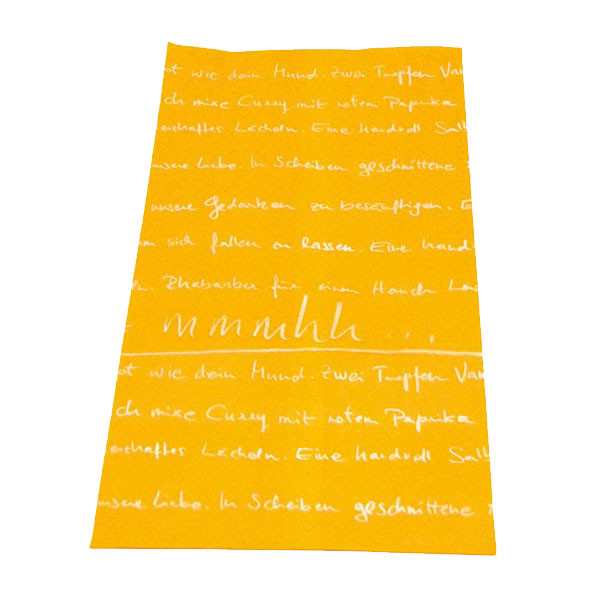 ot wie dein Mund. Zwei Tropfen Van
ch mixe Curry mit rotem Paprika
enschaftes Lächeln. Eine handvoll Salb
unsere Liebe. In Scheiben geschnittene
unsere Gedanken zu besänftigen. E
um sich fallen zu lassen. Eine hand
Rhabarber für einen Hauch
mmmhh...
ot wie dein Mund. Zwei Tropfen Van
ch mixe Curry mit rotem Paprika
enschaftes Lächeln. Eine handvoll Salb
unsere Liebe. In Scheiben geschnittene